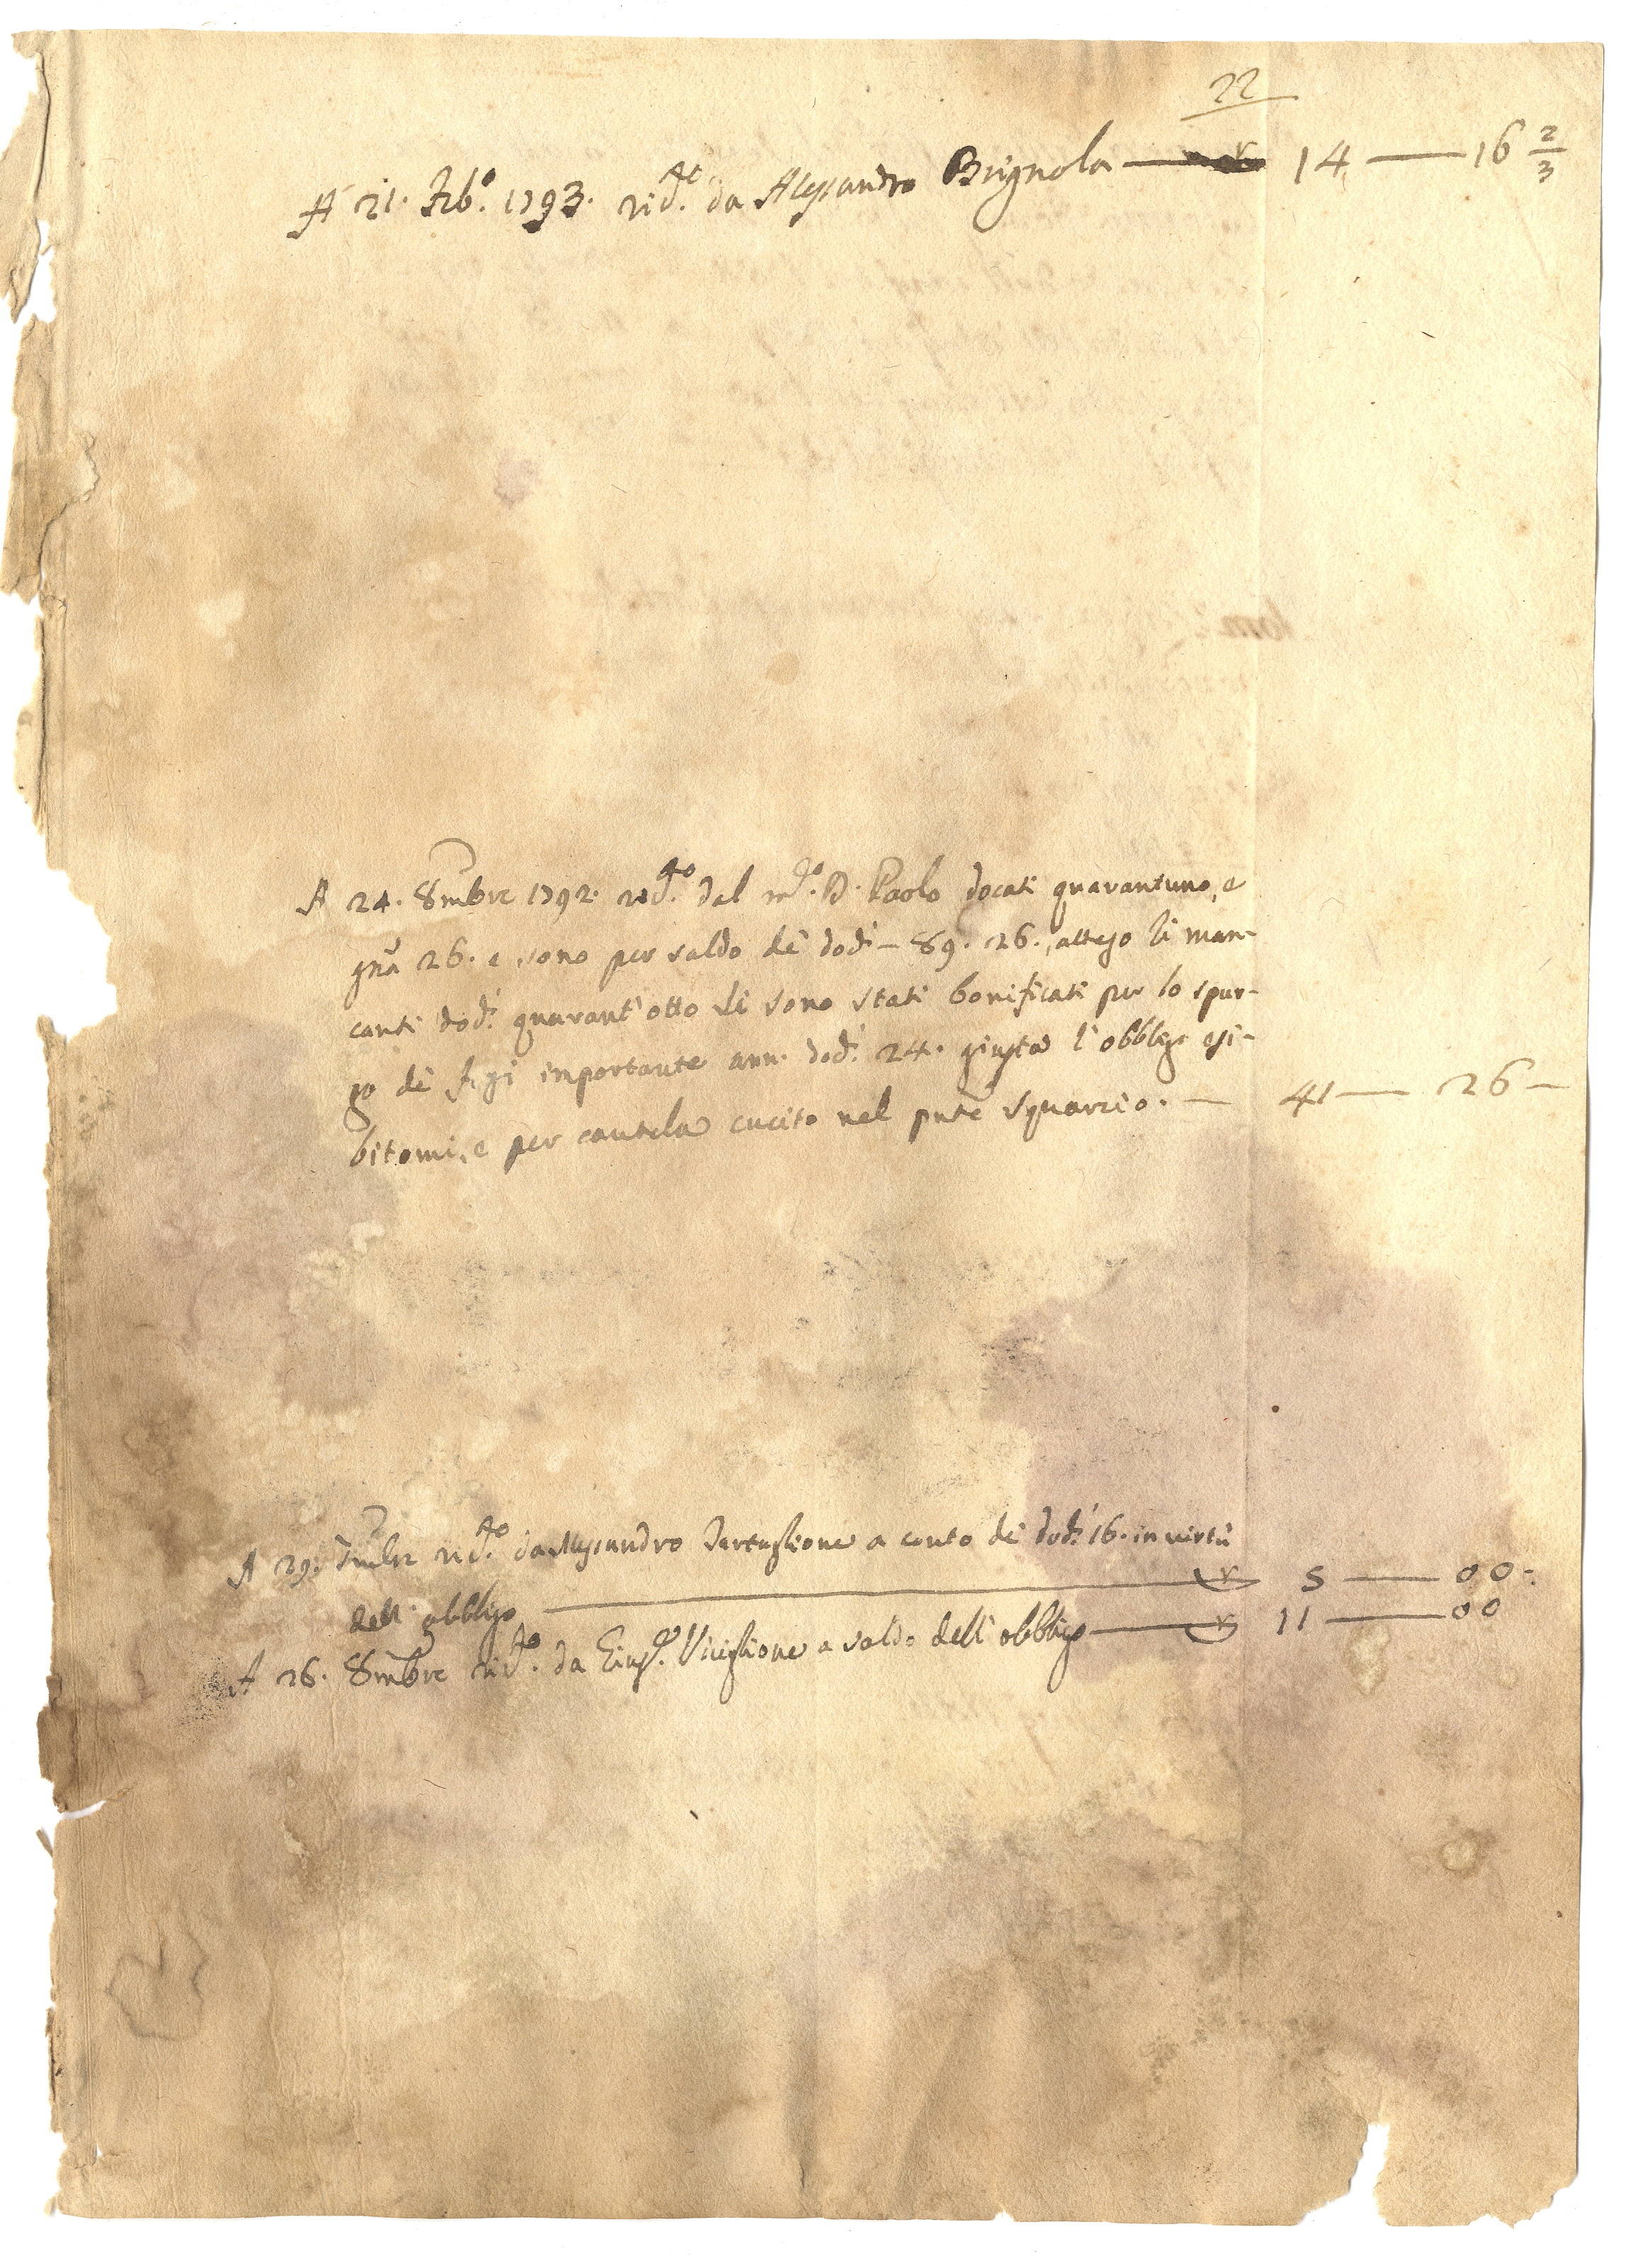 22
A 21. Feb.° 1793. da Alessandro Brignola — 14 — 16 2/3
A 24. 8mbre 1792. dal D. Paolo docati quarantuno, e
gnã 26. e sono per saldo dè dod.i – 89. 26., atteso li man-
canti dod.i quarant'otto li sono stati bonificati per lo spur-
go dè importante ann. dod.i 24. giusta l'obbligo esi-
bitomi, e per cautela cucito nel pnte squarcio. — 41 — 26 —
A 29. da Alessandro a conto dè dod.i 16. in virtù
dell'obbligo — 5 — 00 -
A 26. 8mbre da a saldo dell'obbligo — 11 — 00